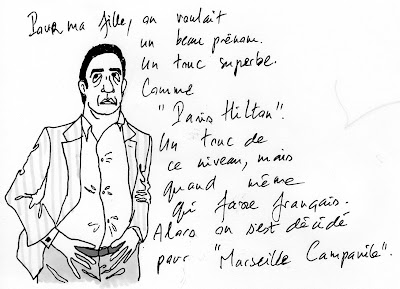 Pour ma fille, on voulait
un beau prénom.
Un truc superbe.
Comme
"Paris Hilton".
Un truc de
ce niveau, mais
quand même
qui fasse français.
Alors on s'est décidé
pour "Marseille Campanile".